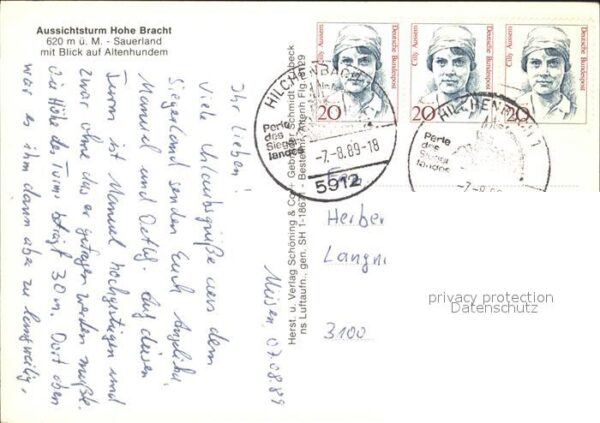 Aussichtsturm Hohe Bracht
620 m ü. M. - Sauerland
mit Blick auf Altenhundem
Ihr Lieben!
Viele Urlaubsgrüße aus dem
Siegerland senden Euch Angelika,
Manuel und Detlef. Auf diesen
Turm ist Manuel hochgestiegen und
zwar ohne das er getragen werden mußte.
Die Höhe des Turms beträgt 30 m. Dort oben
war es ihm dann aber zu langweilig.
Müsen, 07.08.89
Herst. u. Verlag Schöning & Co + Gebrüder Schmidt
ns Luftaufn., gen. SH 1-1867 - Bestellnr. Altenh Flg. 8129
Cilly Aussem
Deutsche Bundespost
20
Cilly Aussem
Deutsche Bundespost
20
Cilly Aussem
Deutsche Bundespost
20
HILCHENBACH
Perle
des
Sieger
landes
-7.-8.89-18
5912
HILCHENBACH 1
Perle
des
Sieger
landes
Fam.
Herber
Langn
3100
privacy protection
Datenschutz